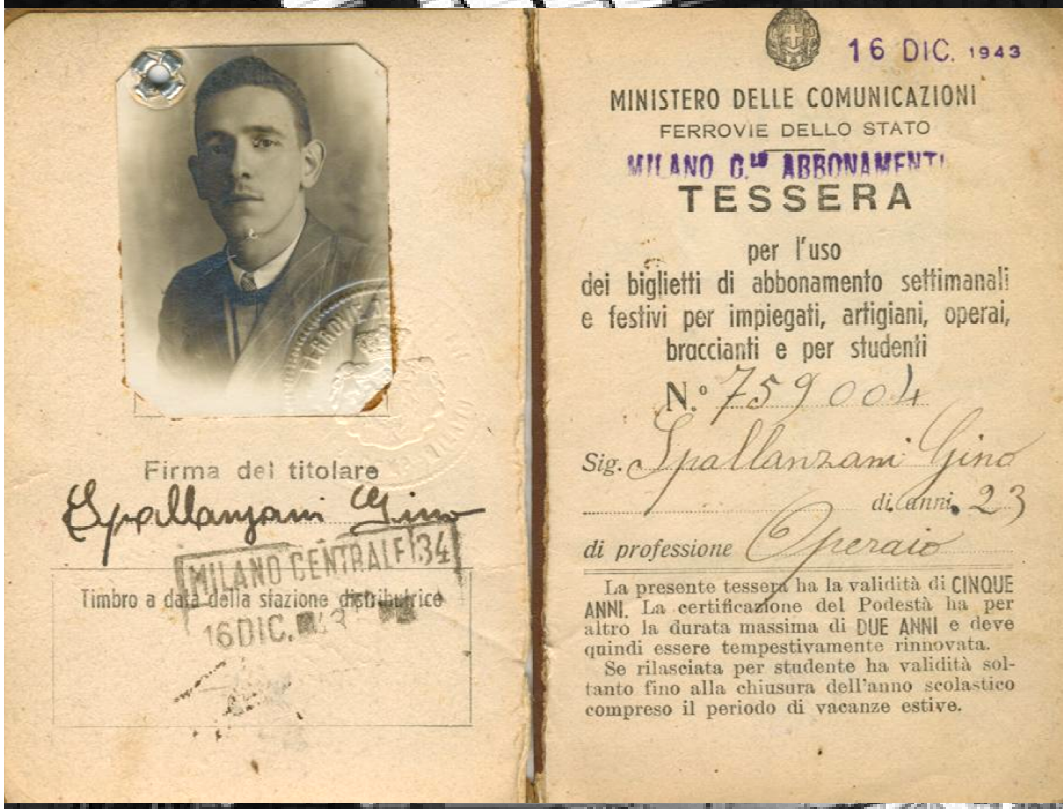 Firma del titolare
Spallanzani Gino
MILANO CENTRALE 34
Timbro a data della stazione distributrice
16 DIC. 43
FERROVIE
MILANO
16 DIC. 1943
MINISTERO DELLE COMUNICAZIONI
FERROVIE DELLO STATO
MILANO C.le ABBONAMENTI
TESSERA
per l'uso
dei biglietti di abbonamento settimanali
e festivi per impiegati, artigiani, operai,
braccianti e per studenti
N.° 759004
Sig. Spallanzani Gino
di anni 23
di professione Operaio
La presente tessera ha la validità di CINQUE
ANNI. La certificazione del Podestà ha per
altro la durata massima di DUE ANNI e deve
quindi essere tempestivamente rinnovata.
Se rilasciata per studente ha validità sol-
tanto fino alla chiusura dell'anno scolastico
compreso il periodo di vacanze estive.